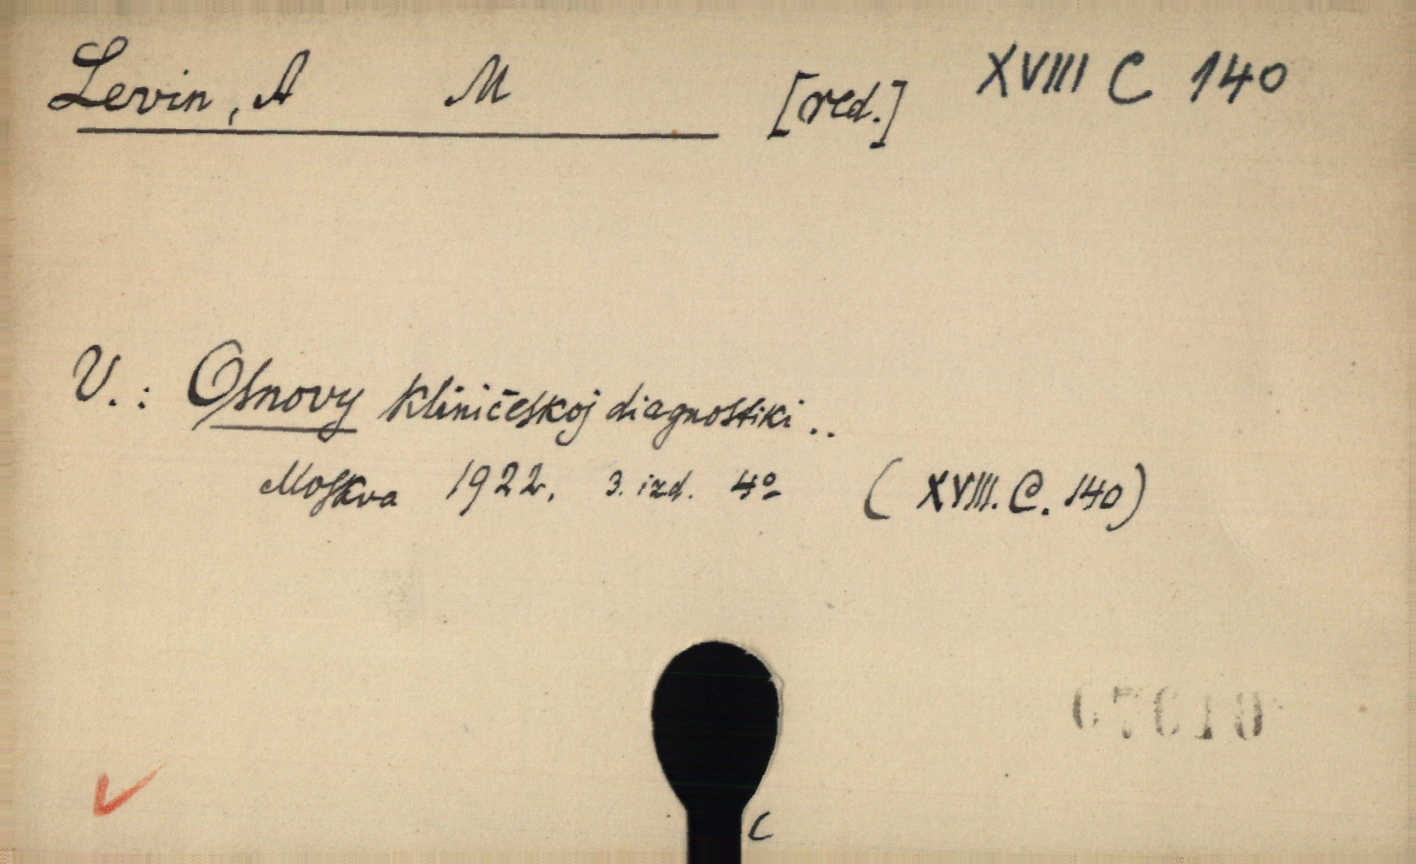 Levin, A M [red.] XVIII C 140
V.: Osnovy kliničeskoj diagnostiki..
Moskva 1922. 3. izd. 4º (XVIII. C. 140)
C